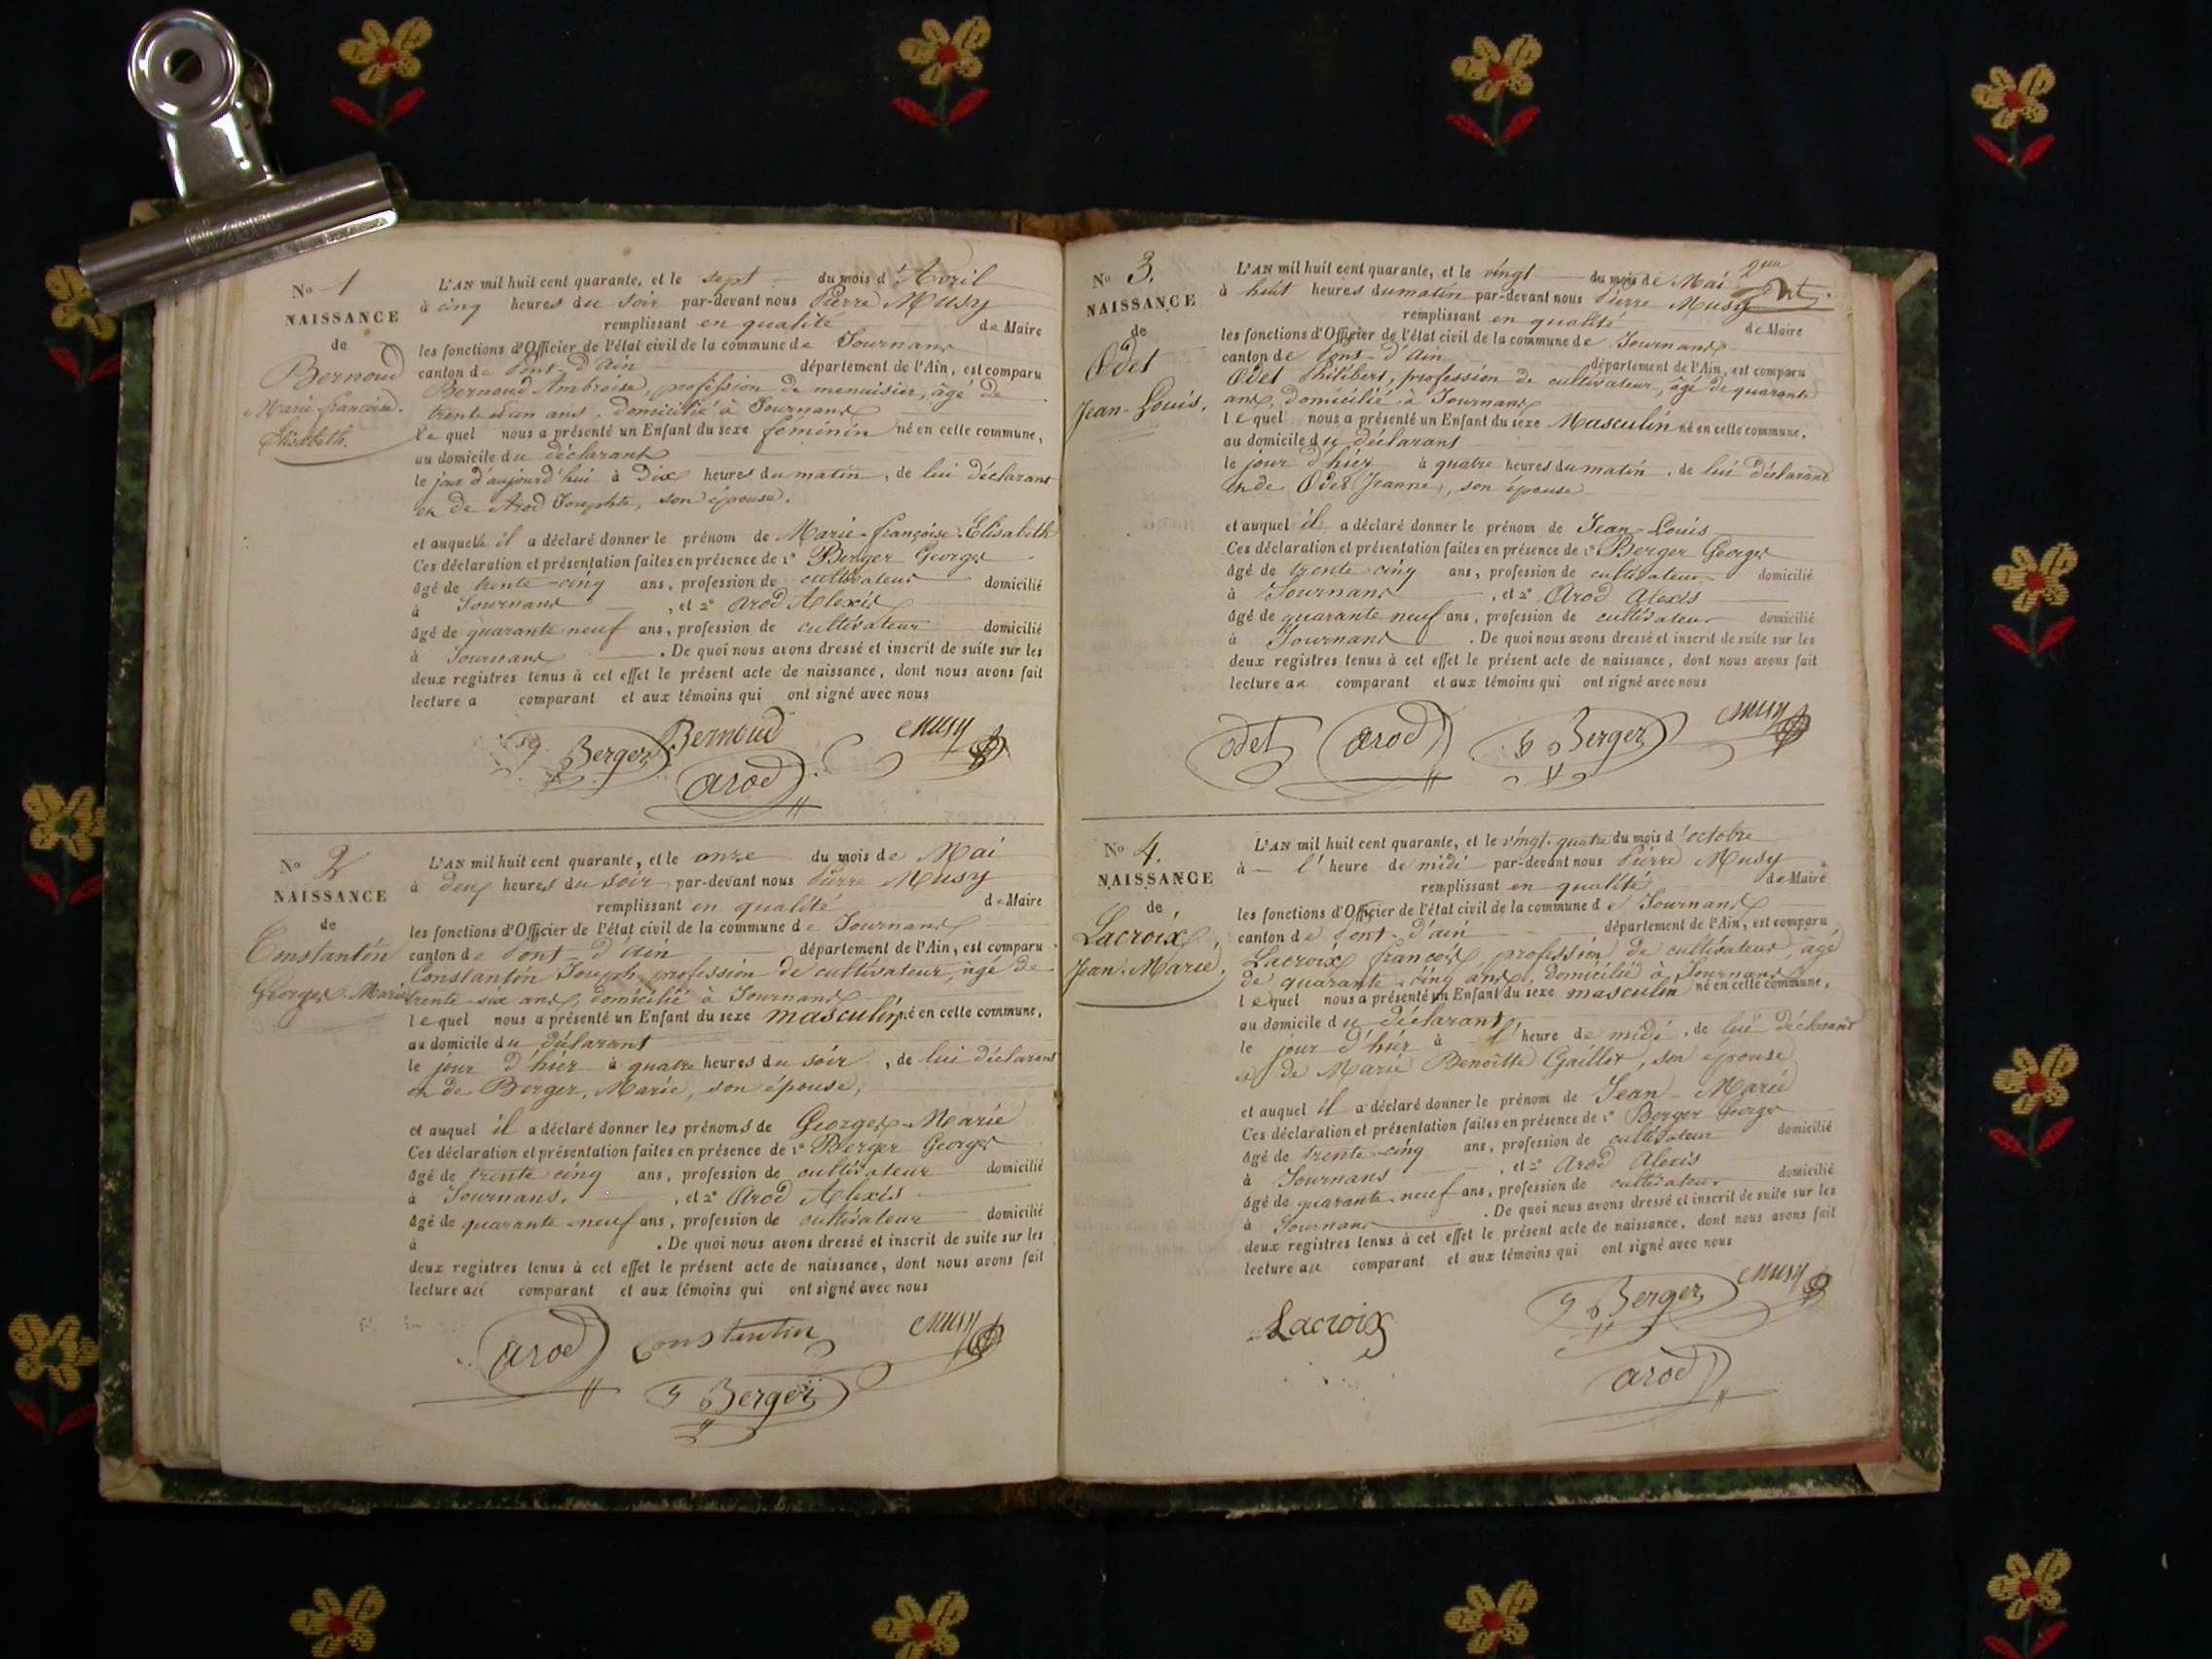 No 1
NAISSANCE
de
Bernoud
Marie françoise
Elisabeth.
L'AN mil huit cent quarante, et le sept du mois d'Avril
à cinq heures du soir par-devant nous Pierre Musy
remplissant en qualité de Maire
les fonctions d'Officier de l'état civil de la commune de Journans
canton de Pont-d'ain département de l'Ain, est comparu
Bernoud Ambroise, profession de menuisier, âgé de
trente et un ans, domicilié à Journans
lequel nous a présenté un Enfant du sexe féminin né en cette commune,
au domicile du déclarant
le jour d'aujourd'hui à Dix heures du matin, de lui déclarant
et de Arod Josephte, son épouse.
et auquelle il a déclaré donner le prénom de Marie-françoise-Elisabeth
Ces déclaration et présentation faites en présence de 1° Berger George
âgé de trente-cinq ans, profession de cultivateur domicilié
à Journans, et 2° Arod Alexis
âgé de quarante neuf ans, profession de cultivateur domicilié
à Journans. De quoi nous avons dressé et inscrit de suite sur les
deux registres tenus à cet effet le présent acte de naissance, dont nous avons fait
lecture a comparant et aux témoins qui ont signé avec nous
g Berger Bernoud Musy
arod
No 2
NAISSANCE
de
Constantin
Georges-Marie
L'AN mil huit cent quarante, et le onze du mois de Mai
à deux heures du soir par-devant nous Pierre Musy
remplissant en qualité de Maire
les fonctions d'Officier de l'état civil de la commune de Journans
canton de Pont-d'ain département de l'Ain, est comparu
Constantin Joseph, profession de cultivateur, âgé de
trente-six ans, domicilié à Journans
lequel nous a présenté un Enfant du sexe masculin né en cette commune,
au domicile du déclarant
le jour d'hier à quatre heures du soir, de lui déclarant
et de Berger, Marie, son épouse,
et auquel il a déclaré donner les prénoms de Georges-Marie
Ces déclaration et présentation faites en présence de 1° Berger George
âgé de trente cinq ans, profession de cultivateur domicilié
à Journans, et 2° Arod Alexis
âgé de quarante-neuf ans, profession de cultivateur domicilié
à . De quoi nous avons dressé et inscrit de suite sur les
deux registres tenus à cet effet le présent acte de naissance, dont nous avons fait
lecture au comparant et aux témoins qui ont signé avec nous
arod Constantin Musy
g Berger
No 3.
NAISSANCE
de
Odet
Jean-Louis.
L'AN mil huit cent quarante, et le vingt du mois de Mai
à huit heures du matin par-devant nous Pierre Musy
remplissant en qualité de Maire
les fonctions d'Officier de l'état civil de la commune de Journans
canton de Pont-d'ain département de l'Ain, est comparu
Odet Philibert, profession de cultivateur, âgé de quarante
ans, domicilié à Journans
lequel nous a présenté un Enfant du sexe Masculin né en cette commune,
au domicile du déclarant
le jour d'hier à quatre heures du matin, de lui déclarant
et de Odet Jeanne, son épouse
et auquel il a déclaré donner le prénom de Jean Louis
Ces déclaration et présentation faites en présence de 1° Berger George
âgé de trente-cinq ans, profession de cultivateur domicilié
à Journans, et 2° Arod Alexis
âgé de quarante neuf ans, profession de cultivateur domicilié
à Journans. De quoi nous avons dressé et inscrit de suite sur les
deux registres tenus à cet effet le présent acte de naissance, dont nous avons fait
lecture au comparant et aux témoins qui ont signé avec nous
odet arod g Berger Musy
No 4.
NAISSANCE
de
Lacroix,
Jean-Marie.
L'AN mil huit cent quarante, et le vingt-quatre du mois d'octobre
à - l'heure de midi par-devant nous Pierre Musy
remplissant en qualité de Maire
les fonctions d'Officier de l'état civil de la commune de Journans
canton de Pont-d'ain département de l'Ain, est comparu
Lacroix françois, profession de cultivateur, âgé
de quarante-cinq ans, domicilié à Journans
lequel nous a présenté un Enfant du sexe masculin né en cette commune,
au domicile du déclarant
le jour d'hier à l'heure de midi, de lui déclarant
et de Marie Benoîtte Gaillot, son épouse
et auquel il a déclaré donner le prénom de Jean-Marie
Ces déclaration et présentation faites en présence de 1° Berger George
âgé de trente-cinq ans, profession de cultivateur domicilié
à Journans, et 2° Arod Alexis
âgé de quarante-neuf ans, profession de cultivateur domicilié
à Journans. De quoi nous avons dressé et inscrit de suite sur les
deux registres tenus à cet effet le présent acte de naissance, dont nous avons fait
lecture au comparant et aux témoins qui ont signé avec nous
Lacroix g Berger Musy
arod